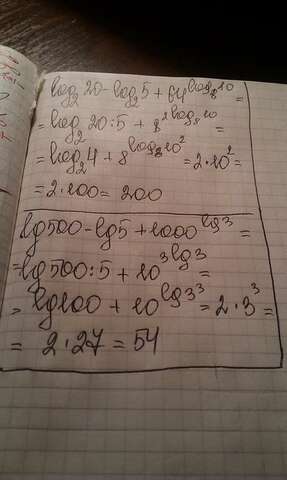 log₂20-log₂5+64^log₈10=
=log₂20:5+8^2log₈10=
=log₂4+8^log₈10²=2·10²=
=2·100=200
lg500-lg5+1000^lg3=
=lg500:5+10^3lg3=
=lg100+10^lg3³=2·3³=
=2·27=54